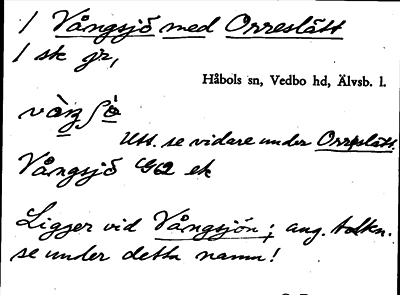 1 Vångsjö med Orreslätt
1 sk jr,
Håbols sn, Vedbo hd, Älvsb. l.
Utt. se vidare under Orreslätt.
Vångsjö GG2 ek
Ligger vid Vångsjön; ang. tolkn.
se under detta namn!